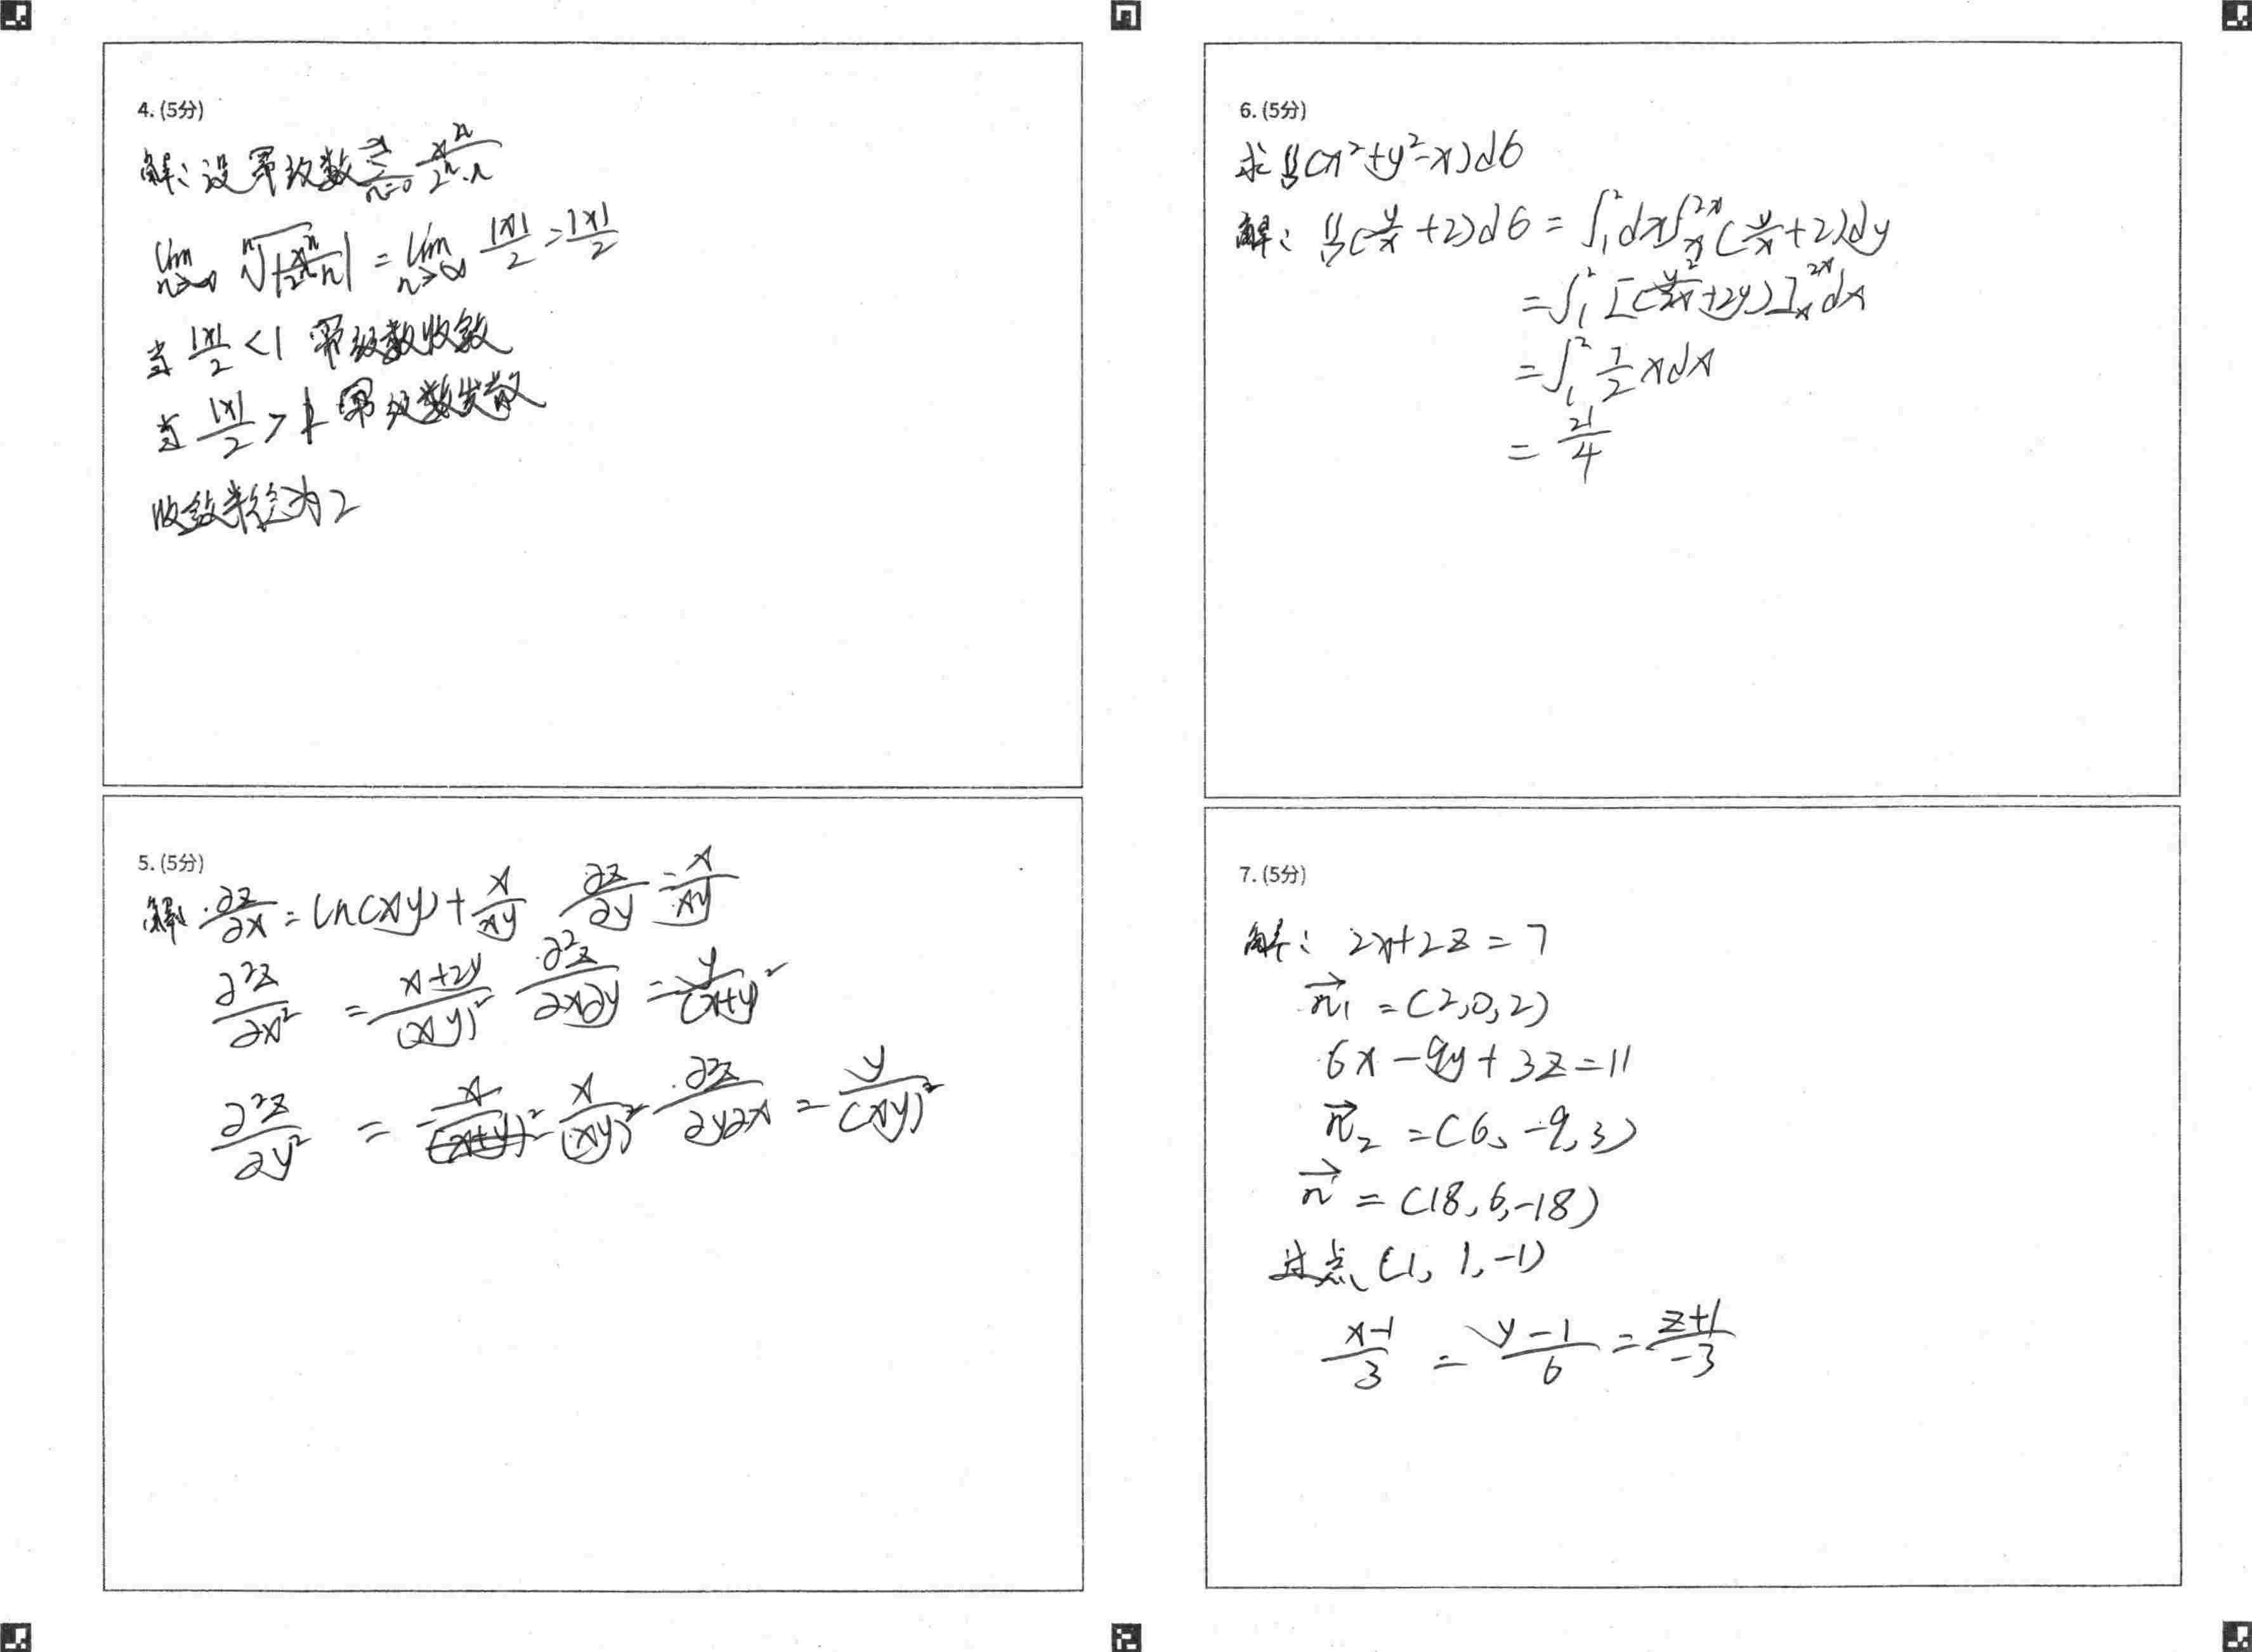 4. (5分)
解：设幂级数 \sum_{n=0}^{∞} \frac{x^n}{2^n·n}
\lim_{n→∞} \sqrt[n]{|\frac{x^n}{2^n n}|} = \lim_{n→∞} \frac{|x|}{2} = \frac{|x|}{2}
当 \frac{|x|}{2} <1 幂级数收敛
当 \frac{|x|}{2} >1 幂级数发散
收敛半径为2
5. (5分)
解: \frac{∂z}{∂x} = ln(xy) + \frac{x}{xy} \frac{∂z}{∂y} = \frac{x}{xy}
\frac{∂^2z}{∂x^2} = \frac{x+2y}{(xy)^2} \frac{∂^2z}{∂x∂y} = \frac{y}{(x+y)^2}
\frac{∂^2z}{∂y^2} = \frac{x}{(xy)^2} \frac{∂^2z}{∂y∂x} = \frac{y}{(xy)^2}
6. (5分)
求∬(x²+y²-x)dσ
解：∬(\frac{y}{x}+2)dσ = ∫_1^2 dx∫_x^{2x} (\frac{y}{x}+2)dy
= ∫_1^2 [(\frac{y^2}{2x}+2y)]_x^{2x} dx
= ∫_1^2 \frac{7}{2} xdx
= \frac{21}{4}
7. (5分)
解：2x+2z=7
\vec{n_1} = (2,0,2)
6x-9y+3z=11
\vec{n}_2 = (6,-9,3)
\vec{n} = (18,6,-18)
过点(1,1,-1)
\frac{x-1}{3} = \frac{y-1}{6} = \frac{z+1}{-3}